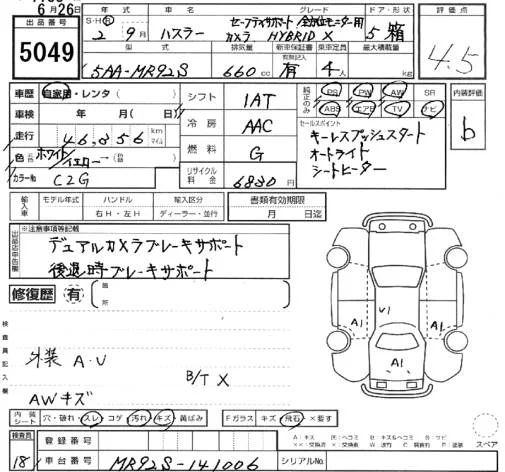 6月26日
出品番号 年式 車名 グレード ドア・形状 評価点
セーフティサポート 全方位モニター用
5049 S・H・R 2年9月 ハスラー カメラ HYBRID X 5 箱 4.5
型式 排気量 新車保証書 乗車定員 最大積載量
有無記入
5AA-MR92S 660cc 有 4人 kg
車歴 自家用・レンタ( ) シフト 1AT 純正のみ PS PW AW SR 内装評価
車検 年 月( 日) ABS エアB TV ナビ
冷房 AAC セールスポイント b
走行 46,856 km マイル キーレスプッシュスタート
オートライト
色 ホワイト/イエロー→(替 ) 燃料 G シートヒーター
カラーNo. C2G リサイクル料金 6830円
輸入車 モデル年式 ハンドル 輸入区分 書類有効期限
右H・左H ディーラー・並行 月 日迄
出品店申告欄 ※注意事項等記載
デュアルカメラブレーキサポート
後退時ブレーキサポート
修復歴 有 箇所
検査員記入欄
外装 A・U
B/T X
AWキズ
A1 U1 A1
A1
内装シート 穴・破れ・スレ・コゲ・汚れ・キズ・黄ばみ Fガラス キズ・飛石・×要す
スペア
検査員 登録番号
18 車台番号 MR92S-141006 シリアルNo.